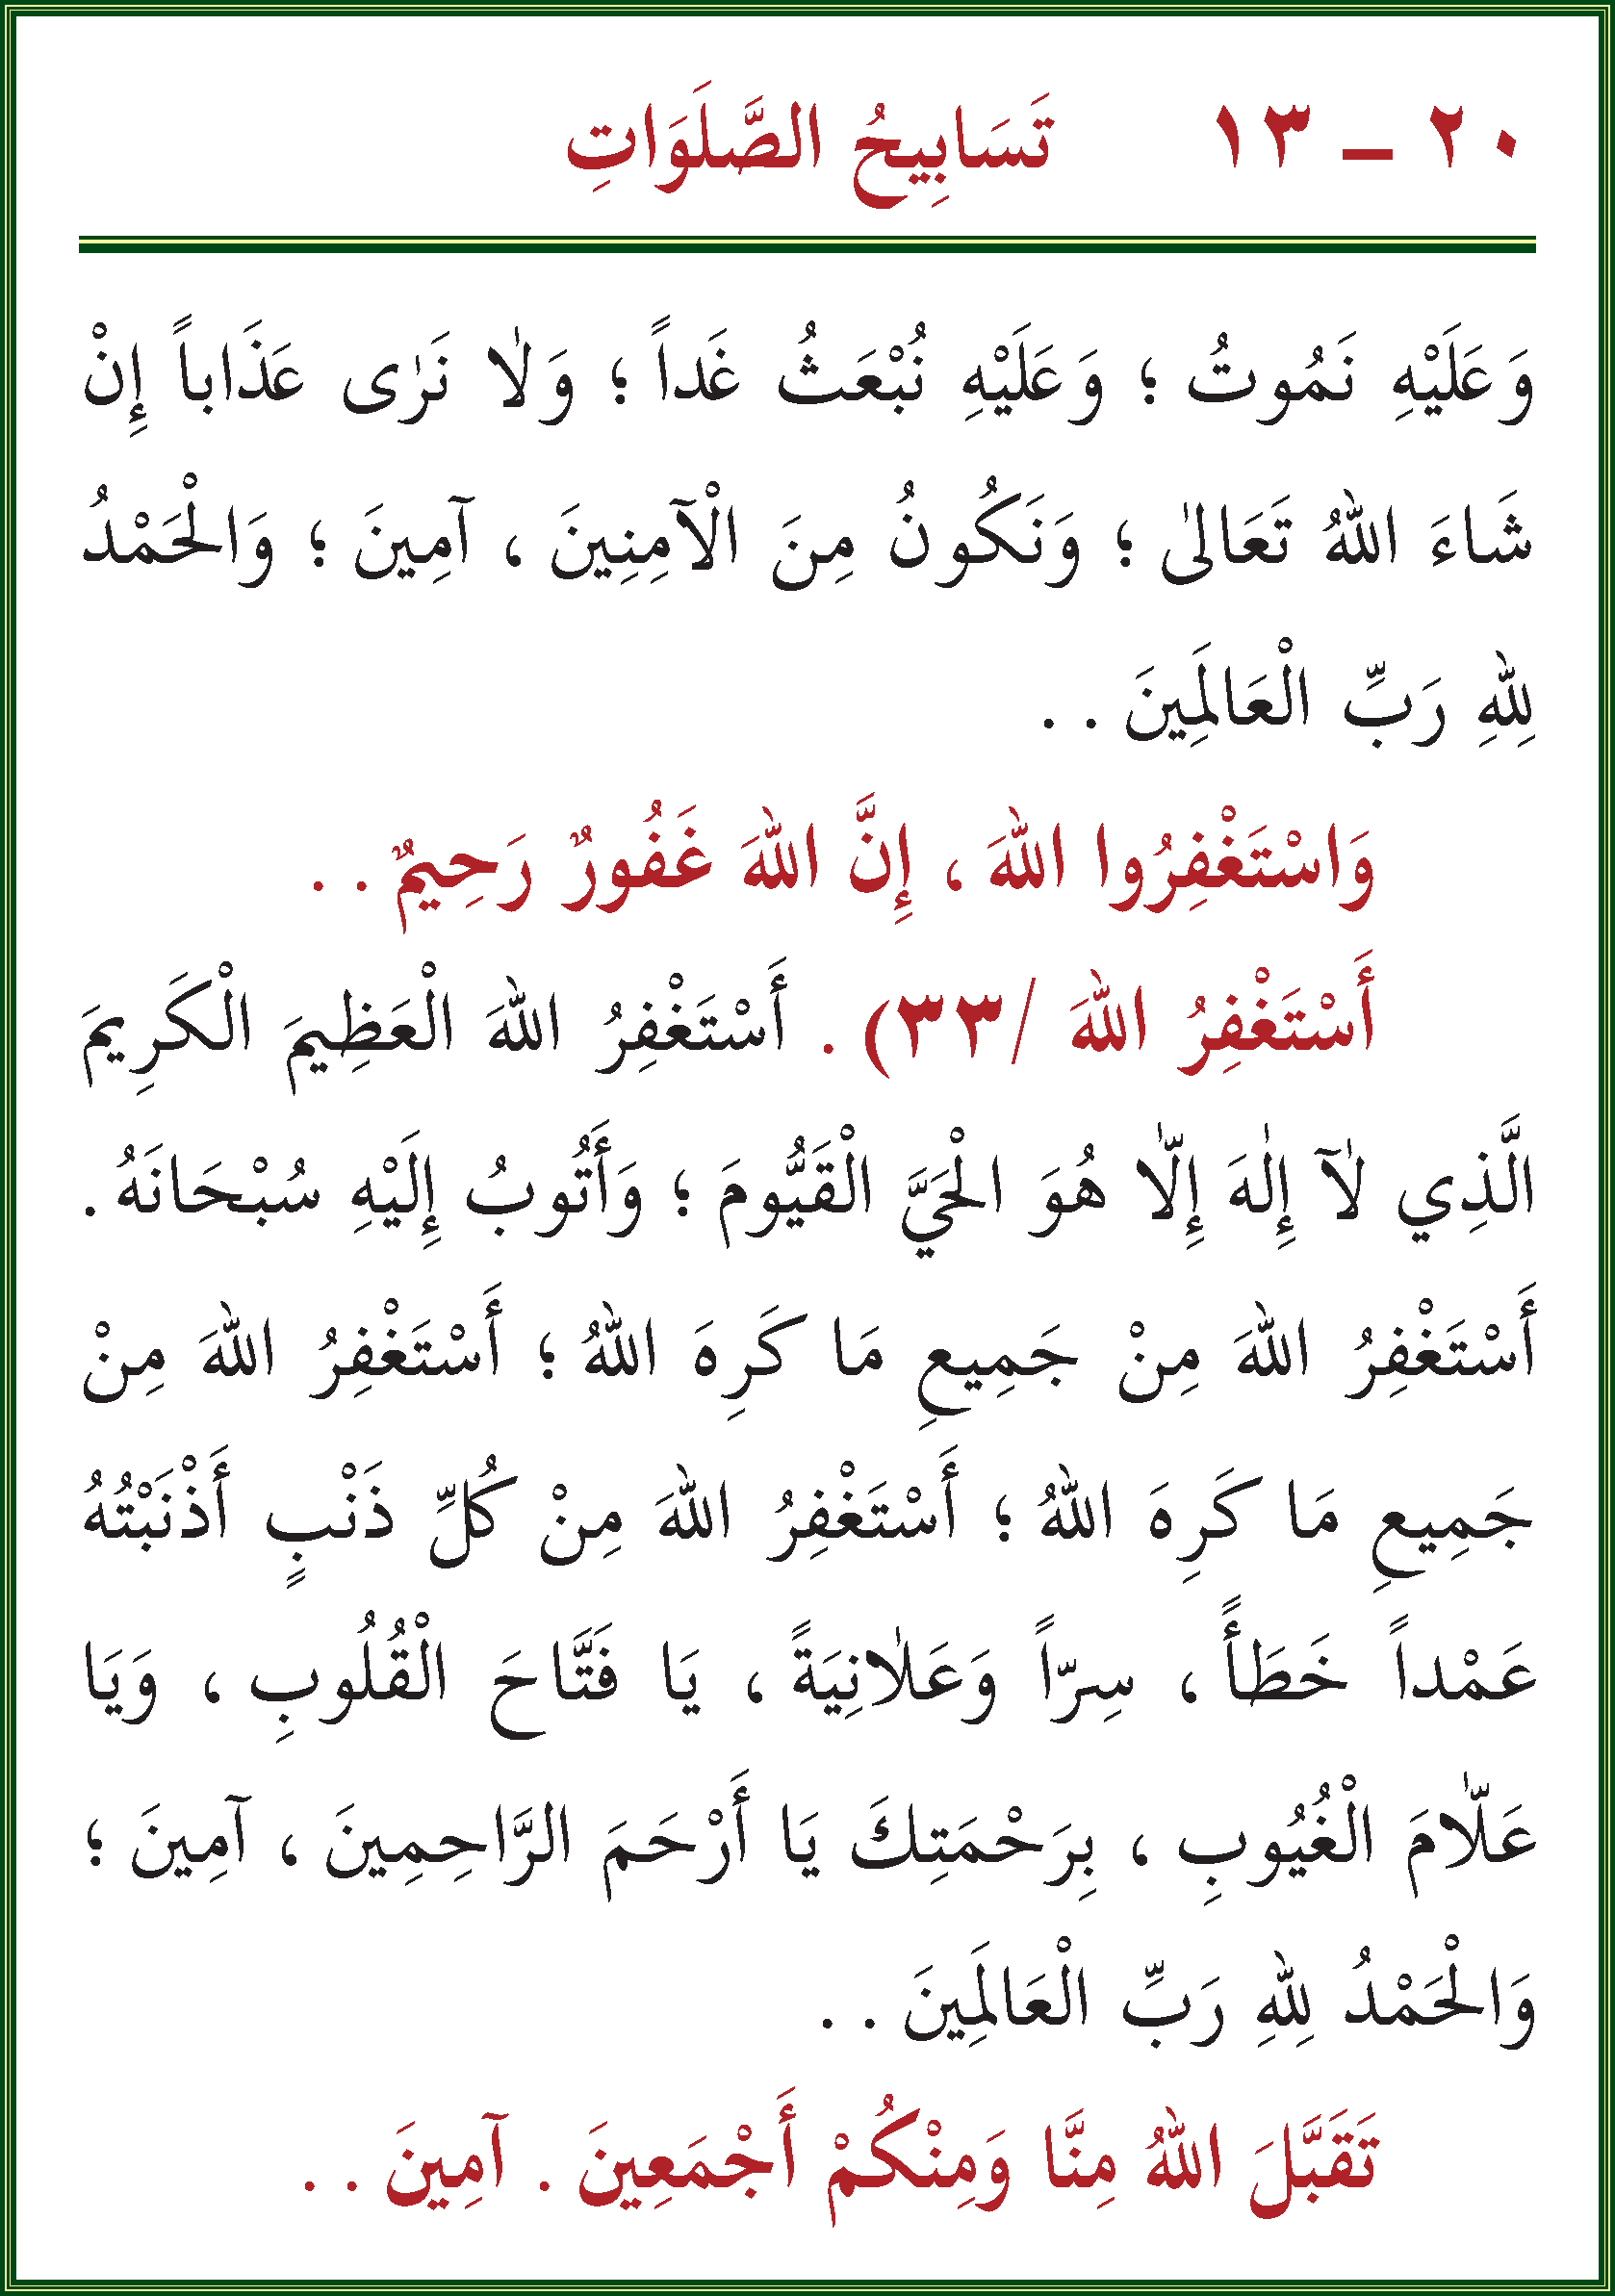 ٢٠ – ١٣ تَسَابِيحُ الصَّلَوَاتِ
وَعَلَيْهِ نَمُوتُ ؛ وَعَلَيْهِ نُبْعَثُ غَداً ؛ وَلٰا نَرٰى عَذَاباً إِنْ
شَاءَ اللهُ تَعَالىٰ ؛ وَنَكُونُ مِنَ الْآمِنِينَ ، آمِينَ ؛ وَالْحَمْدُ
لِلهِ رَبِّ الْعَالَمِينَ . .
وَاسْتَغْفِرُوا اللهَ ، إِنَّ اللهَ غَفُورٌ رَحِيمٌ . .
أَسْتَغْفِرُ اللهَ /٣٣) . أَسْتَغْفِرُ اللهَ الْعَظِيمَ الْكَرِيمَ
الَّذِي لٰآ إِلٰهَ إِلّٰا هُوَ الْحَيَّ الْقَيُّومَ ؛ وَأَتُوبُ إِلَيْهِ سُبْحَانَهُ .
أَسْتَغْفِرُ اللهَ مِنْ جَمِيعِ مَا كَرِهَ اللهُ ؛ أَسْتَغْفِرُ اللهَ مِنْ
جَمِيعِ مَا كَرِهَ اللهُ ؛ أَسْتَغْفِرُ اللهَ مِنْ كُلِّ ذَنْبٍ أَذْنَبْتُهُ
عَمْداً خَطَأً ، سِرّاً وَعَلٰانِيَةً ، يَا فَتَّاحَ الْقُلُوبِ ، وَيَا
عَلّٰامَ الْغُيُوبِ ، بِرَحْمَتِكَ يَا أَرْحَمَ الرَّاحِمِينَ ، آمِينَ ؛
وَالْحَمْدُ لِلهِ رَبِّ الْعَالَمِينَ . .
تَقَبَّلَ اللهُ مِنَّا وَمِنْكُمْ أَجْمَعِينَ . آمِينَ . .